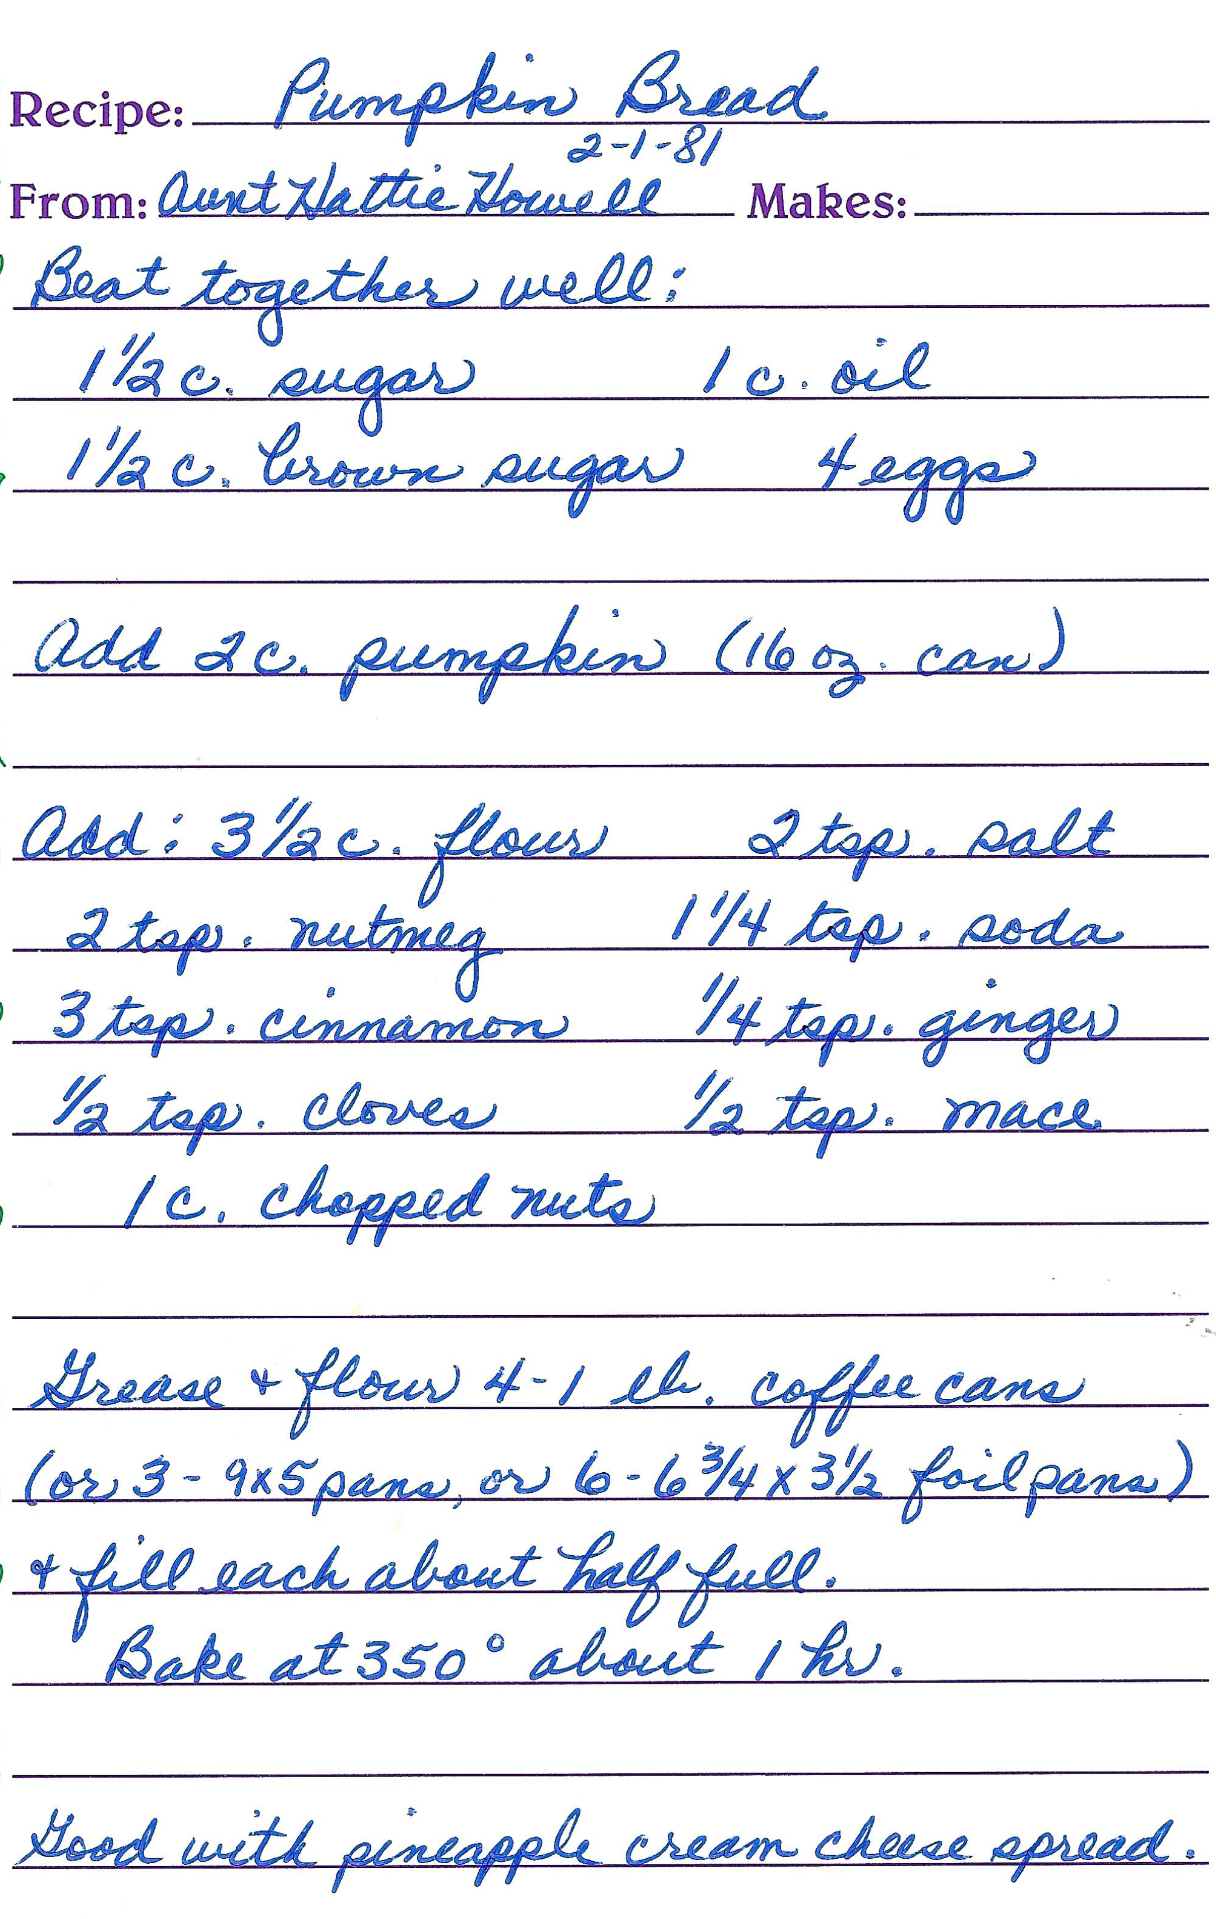 Recipe: Pumpkin Bread
2-1-81
From: Aunt Hattie Howell Makes:
Beat together well:
1 1/2 c. sugar 1 c. oil
1 1/2 c. brown sugar 4 eggs
Add 2 c. pumpkin (16 oz. can)
Add: 3 1/2 c. flour 2 tsp. salt
2 tsp. nutmeg 1 1/4 tsp. soda
3 tsp. cinnamon 1/4 tsp. ginger
1/2 tsp. cloves 1/2 tsp. mace
1 c. chopped nuts
Grease + flour 4-1 lb. coffee cans
(or 3 - 9x5 pans, or 6 - 6 3/4 x 3 1/2 foil pans)
+ fill each about half full.
Bake at 350° about 1 hr.
Good with pineapple cream cheese spread.